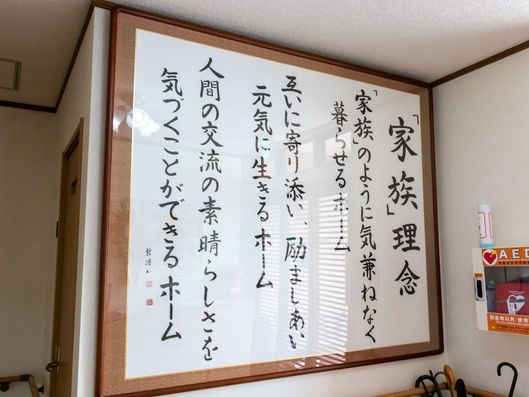 「家族」理念
「家族」のように気兼ねなく
暮らせるホーム
互いに寄り添い、励ましあい
元気に生きるホーム
人間の交流の素晴らしさを
気づくことができるホーム
AED